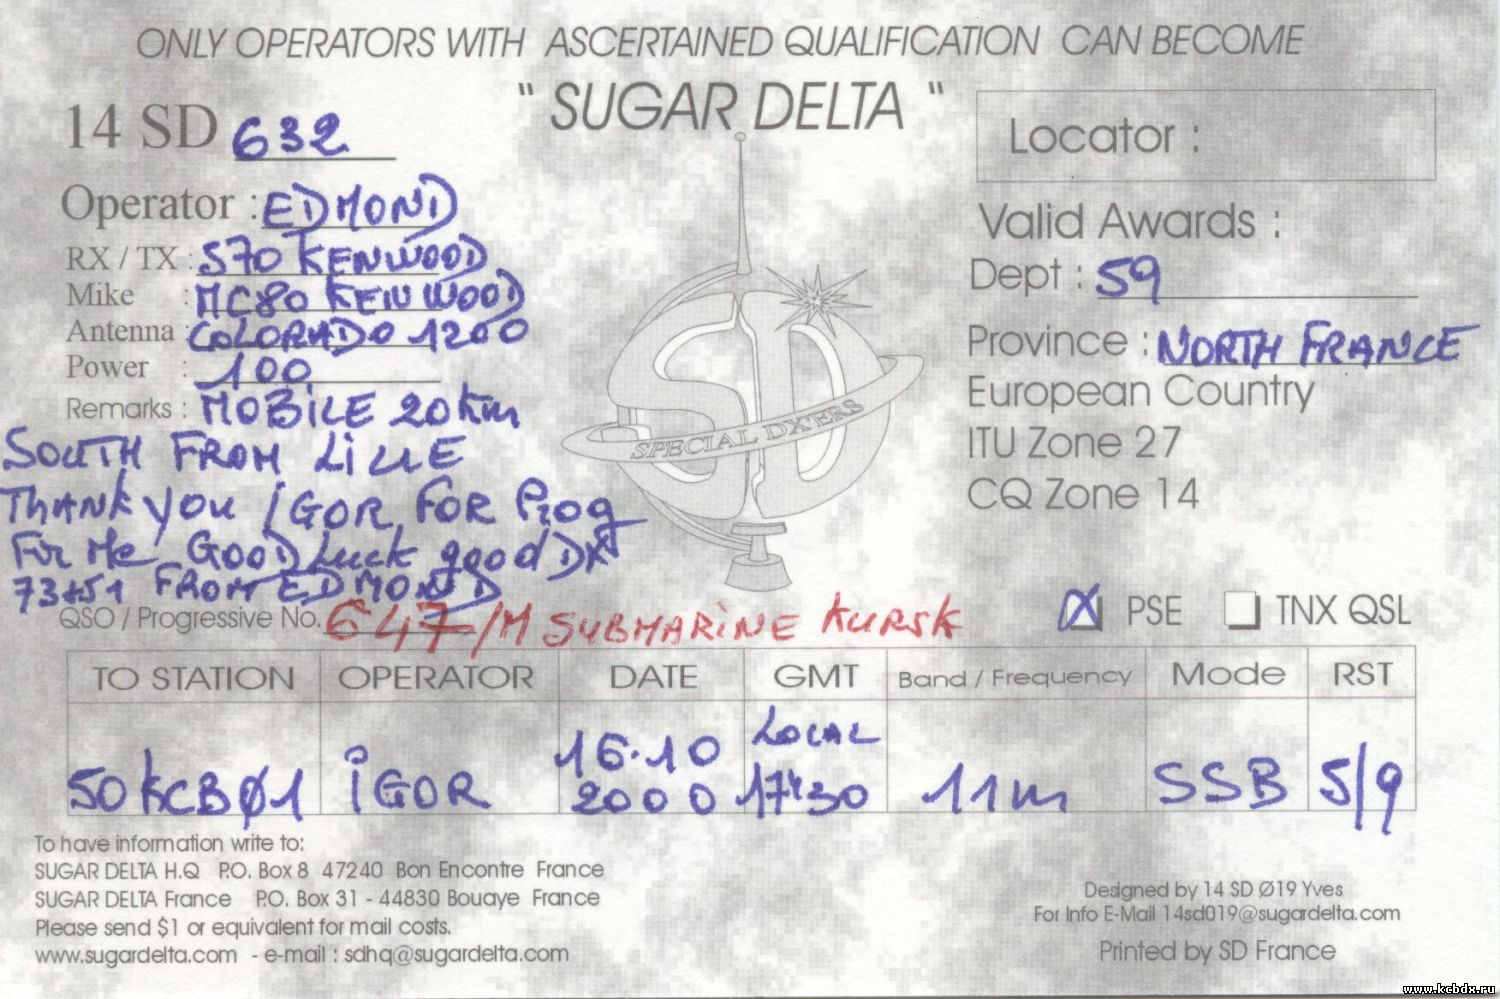 ONLY OPERATORS WITH ASCERTAINED QUALIFICATION CAN BECOME
" SUGAR DELTA "
14 SD 632
Operator : EDMOND
RX / TX : 570 KENWOOD
Mike : MC80 KENWOOD
Antenna : COLORADO 1200
Power : 100
Remarks : MOBILE 20 Km
SOUTH FROM LILLE
THANK YOU IGOR FOR Prog
For Me GOOD Luck good DX
73+51 FROM EDMOND
Locator :
Valid Awards :
Dept : 59
Province : NORTH FRANCE
European Country
ITU Zone 27
CQ Zone 14
SD
SPECIAL DX'ERS
QSO / Progressive No. 647/M SUBMARINE KURSK
X PSE TNX QSL
TO STATION OPERATOR DATE GMT Band / Frequency Mode RST
50KCBØ1 IGOR 16.10 2000 LOCAL 17H30 11m SSB 5/9
To have information write to:
SUGAR DELTA H.Q P.O. Box 8 47240 Bon Encontre France
SUGAR DELTA France P.O. Box 31 - 44830 Bouaye France
Please send $1 or equivalent for mail costs.
www.sugardelta.com - e-mail : sdhq@sugardelta.com
Designed by 14 SD Ø19 Yves
For Info E-Mail 14sd019@sugardelta.com
Printed by SD France
www.kcbdx.ru